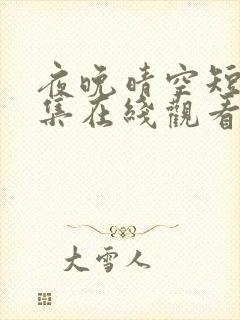 夜晚晴空短
集在綫觀看
大雪人